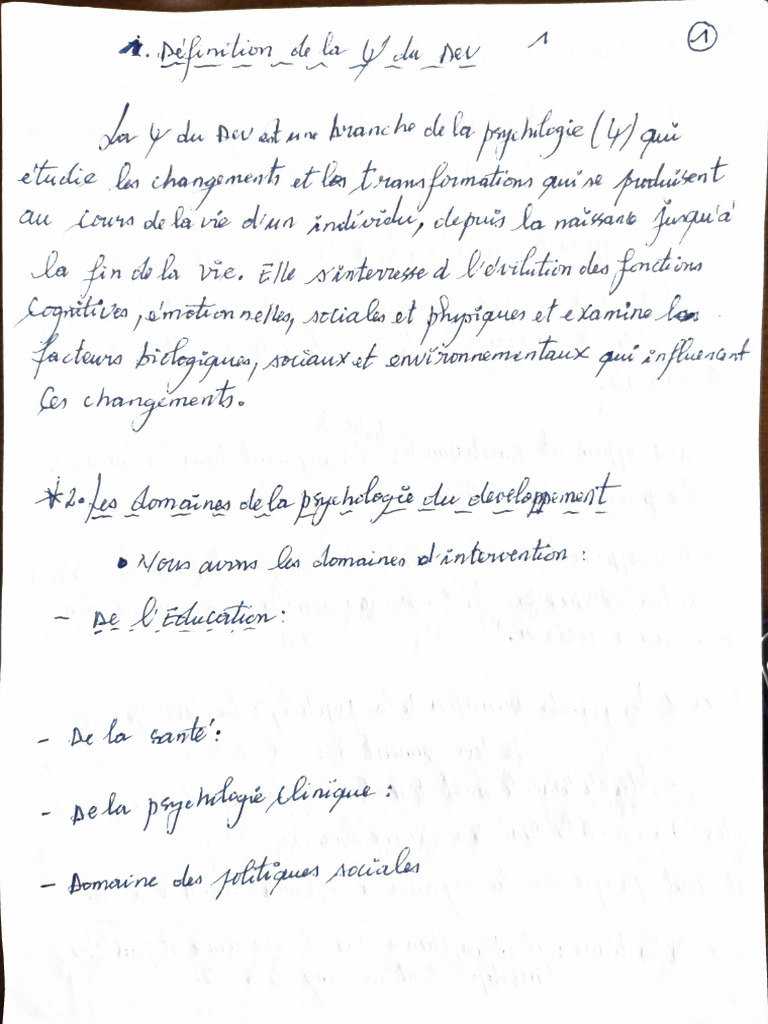 1. Définition de la Ψ du Dev 1 1
La Ψ du Dev est une branche de la psychologie (Ψ) qui
étudie les changements et les transformations qui se produisent
au cours de la vie d'un individu, depuis la naissance jusqu'à
la fin de la vie. Elle s'interresse à l'évolution des fonctions
cognitives, émotionnelles, sociales et physiques et examine les
facteurs biologiques, sociaux et environnementaux qui influencent
ces changements.
*2. Les domaines de la psychologie du developpement
• Nous avons les domaines d'intervention :
- De l'Education :
- De la santé :
- De la psychologie clinique :
- Domaine des politiques sociales